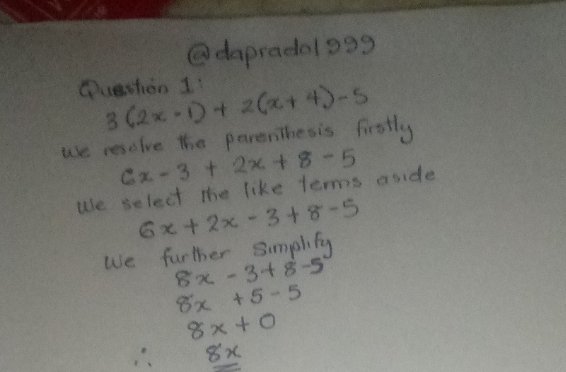 @daprado1999
Question 1:
3(2x-1) + 2(x+4)-5
We resolve the parenthesis firstly
6x-3 + 2x+8-5
We select the like terms aside
6x+2x-3+8-5
We further simplify
8x-3+8-5
8x +5-5
8x+0
∴ 8x